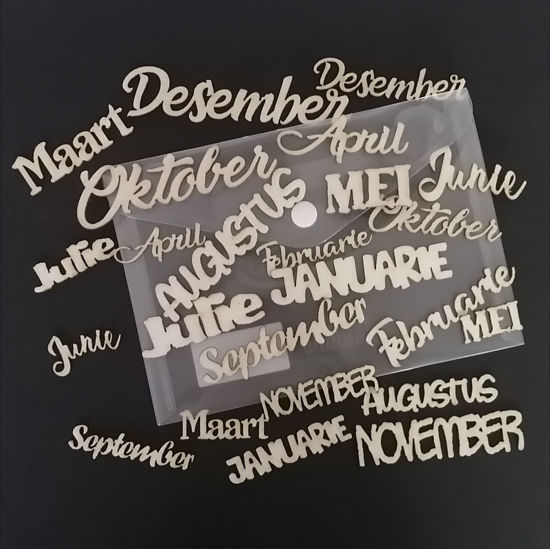 Desember
Desember
Maart
April
Oktober
MEI
Junie
AUGUSTUS
Oktober
Julie
April
Februarie
JANUARIE
Julie
September
Februarie
MEI
Junie
NOVEMBER
AUGUSTUS
Maart
September
JANUARIE
NOVEMBER